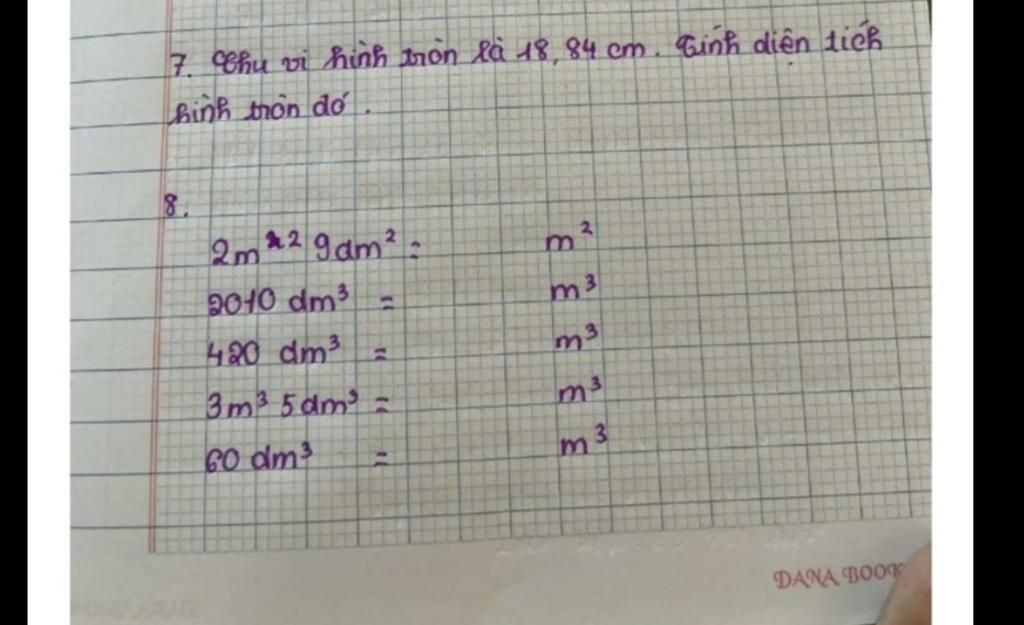 7. Chu vi hình tròn là 18,84 cm. Tính diện tích
hình tròn đó.
8.
2m² 9dm² =    m²
2010 dm³ =    m³
420 dm³ =    m³
3m³ 5dm³ =    m³
60 dm³ =    m³
DANA BOOK